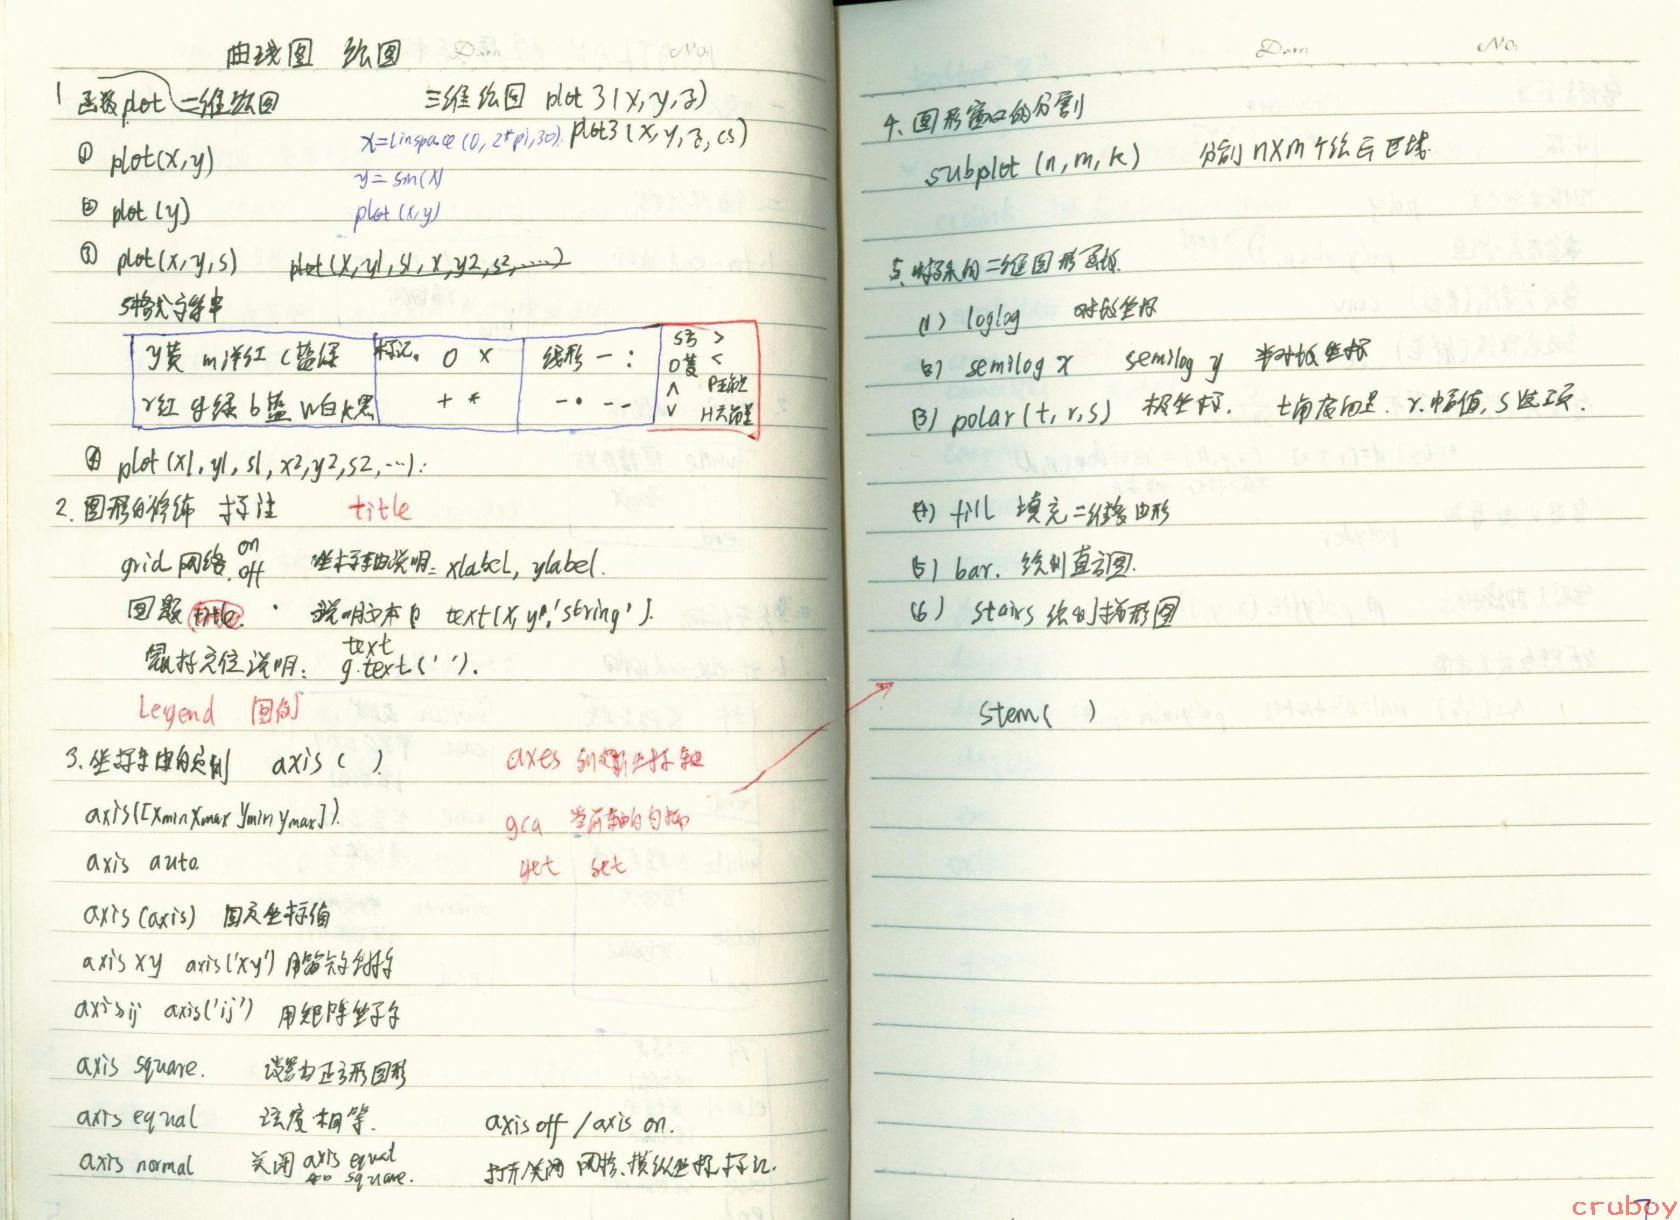 曲线图 绘图
1 函数plot 二维绘图 三维绘图 plot3(x,y,z)
x=linspace(0,2*pi,30). plot3(x,y,z,cs)
① plot(x,y)
y=sin(x)
② plot(y) plot(x,y)
③ plot(x,y,s) plot(x,y1,s1,x,y2,s2,...)
S格式字符串
y黄 m洋红 c蓝绿 标记. O × 线形 - : S方 >
r红 g绿 b蓝 w白 k黑 + * -· -- D菱 <
∧ P五角星
∨ H六角星
④ plot(x1,y1,s1,x2,y2,s2,...):
2. 图形的修饰 标注 title
grid 网络 on off 坐标轴说明: xlabel, ylabel.
图题 title. 说明文本 text(x,y,'string').
鼠标定位说明: gtext(' ').
text
Legend 图例
3.坐标轴的控制 axis( ) axes 创建新坐标轴
axis([xmin xmax ymin ymax]). gca 当前轴的句柄
axis auto. get set
axis(axis) 固定坐标值
axis xy axis('xy')
axis ij axis('ij') 用矩阵坐标
axis square. 设置为正方形图形
axis equal 相等. axis off / axis on.
axis normal 关闭 axis equal 和 square. 打开/关闭 网格、横纵坐标、标记.
Date: No:
4. 图形窗口的分割
subplot(n,m,k) 分割n×m个绘画区域.
5.特殊的二维图形函数.
(1) loglog 对数坐标
(2) semilog x semilog y 半对数坐标
(3) polar(t,r,s) 极坐标. t角度向量. r.幅值, s选项.
(4) fill 填充二维图形
(5) bar. 绘制直方图.
(6) stairs 绘制梯形图
stem( )
cruboy